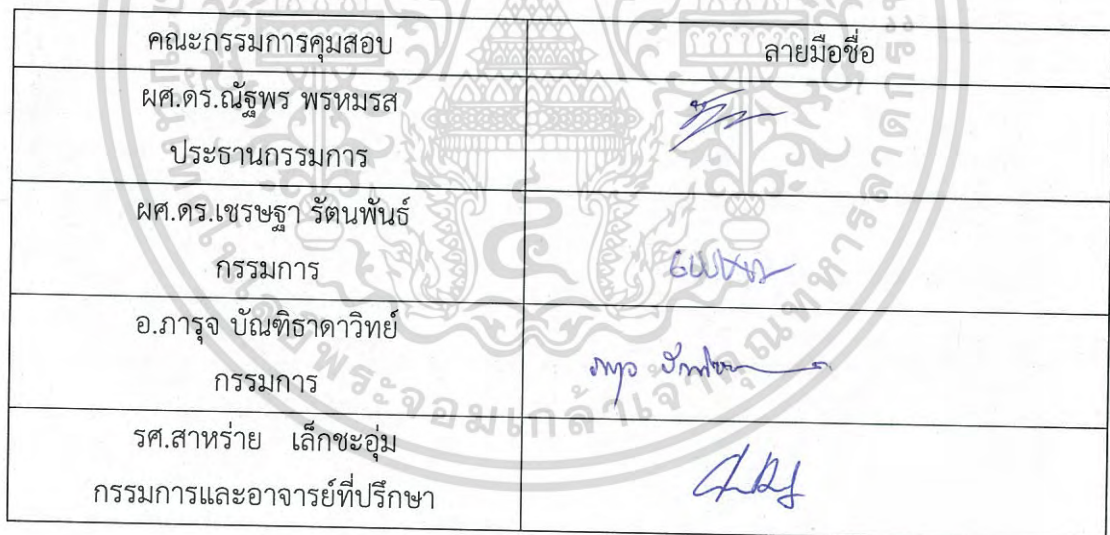 คณะกรรมการคุมสอบ ลายมือชื่อ
ผศ.ดร.ณัฐพร พรหมรส
ประธานกรรมการ
ผศ.ดร.เชรษฐา รัตนพันธ์
กรรมการ
อ.ภารุจ บัณฑิธาดาวิทย์
กรรมการ
รศ.สาหร่าย เล็กชะอุ่ม
กรรมการและอาจารย์ที่ปรึกษา
พระจอมเกล้าเจ้าคุณทหารลาดกระบัง